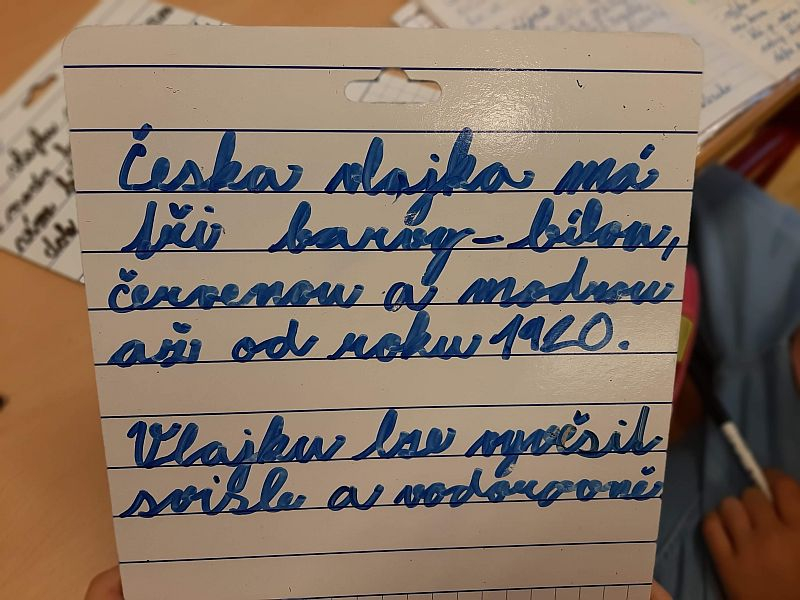 Česka vlajka má
tři barvy - bílou,
červenou a modrou
až od roku 1920.
Vlajku lze vyvěsit
svisle a vodorovně